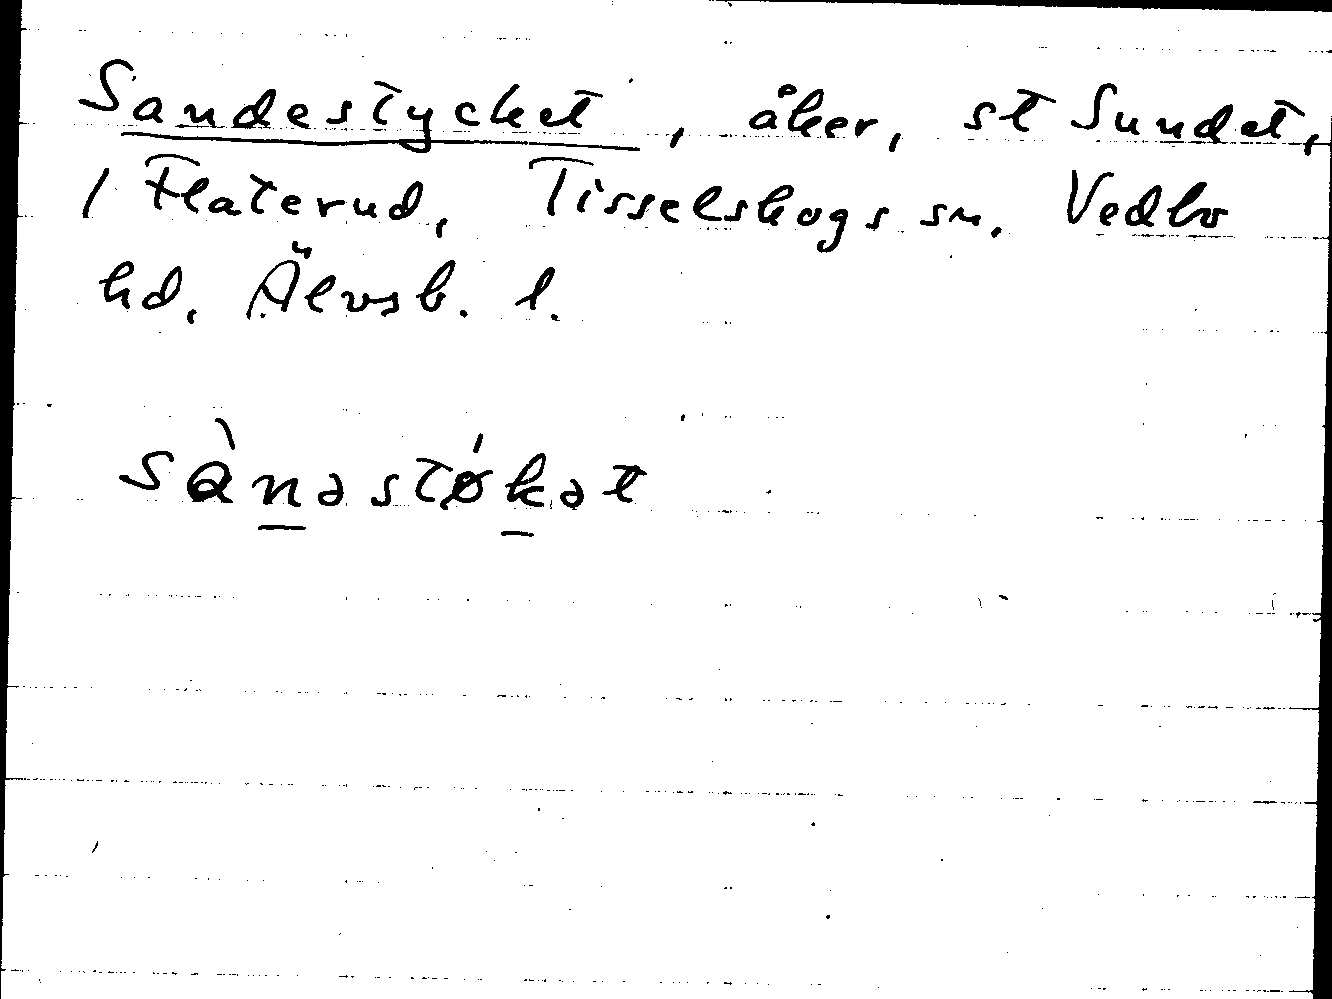 Sandestycket, åker, st Sundet,
1 Flaterud, Tisselskogs sn, Vedbo
hd, Älvsb. l.
sànəstǿkət